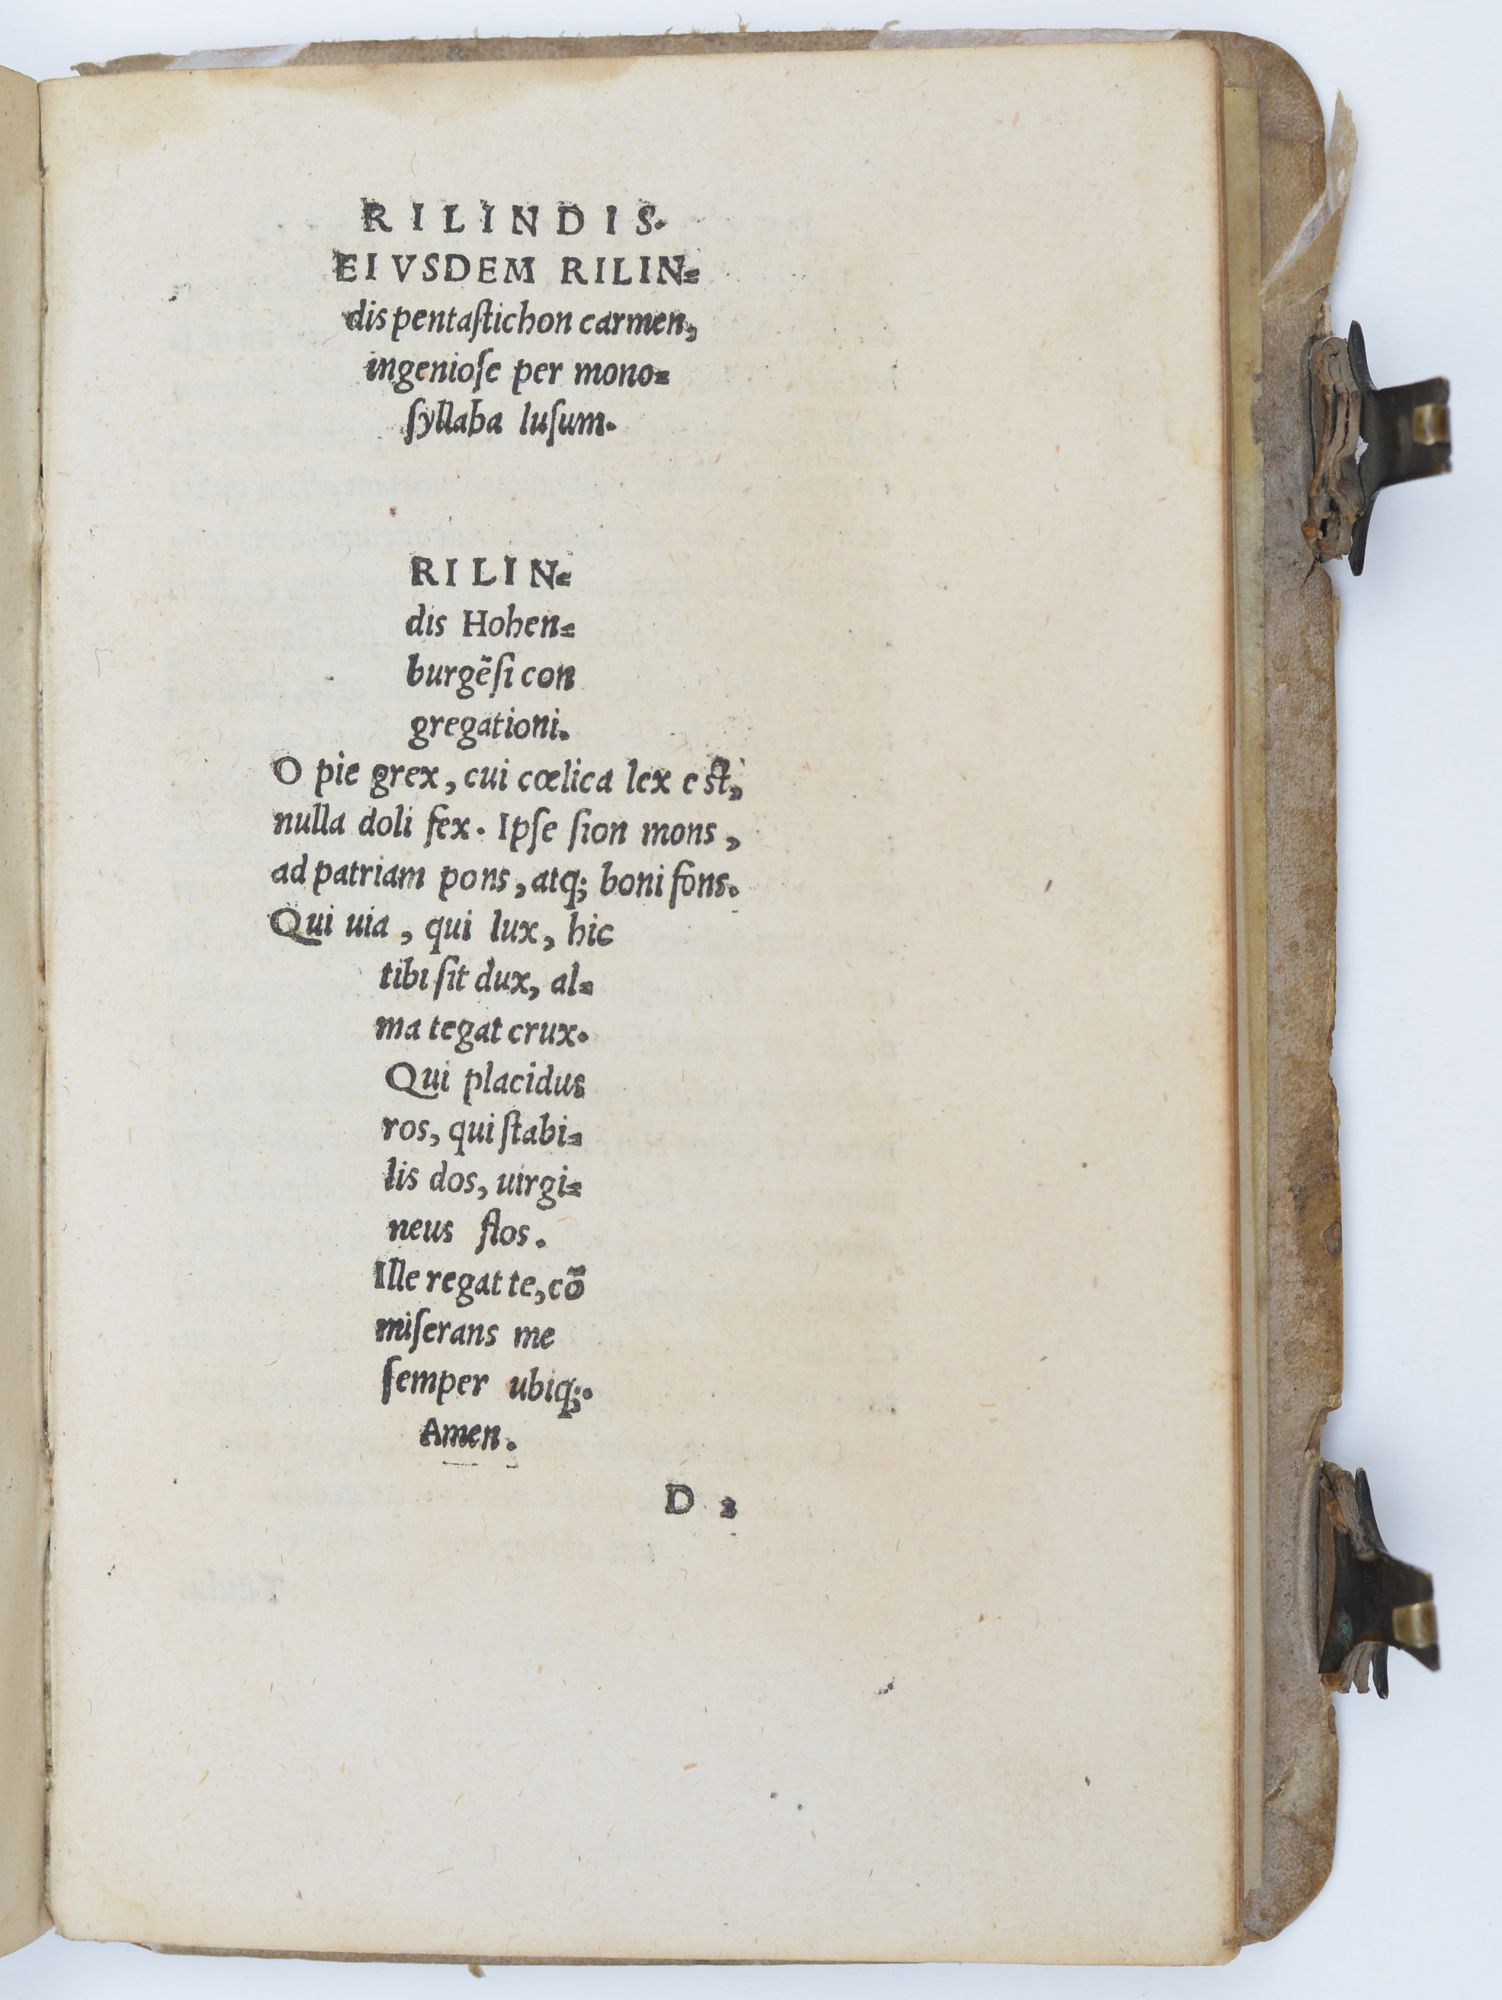 RILINDIS.
EIVSDEM RILIN=
dis pentaſtichon carmen,
ingenioſe per mono=
ſyllaba luſum.
RILIN=
dis Hohen=
burgẽſi con
gregationi.
O pie grex, cui cœlica lex eſt,
nulla doli fex. Ipſe ſion mons,
ad patriam pons, atq; boni fons.
Qui uia, qui lux, hic
tibi ſit dux, al=
ma tegat crux.
Qui placidus
ros, qui ſtabi=
lis dos, uirgi=
neus flos.
Ille regat te, cõ
miſerans me
ſemper ubiq;.
Amen.
D 2